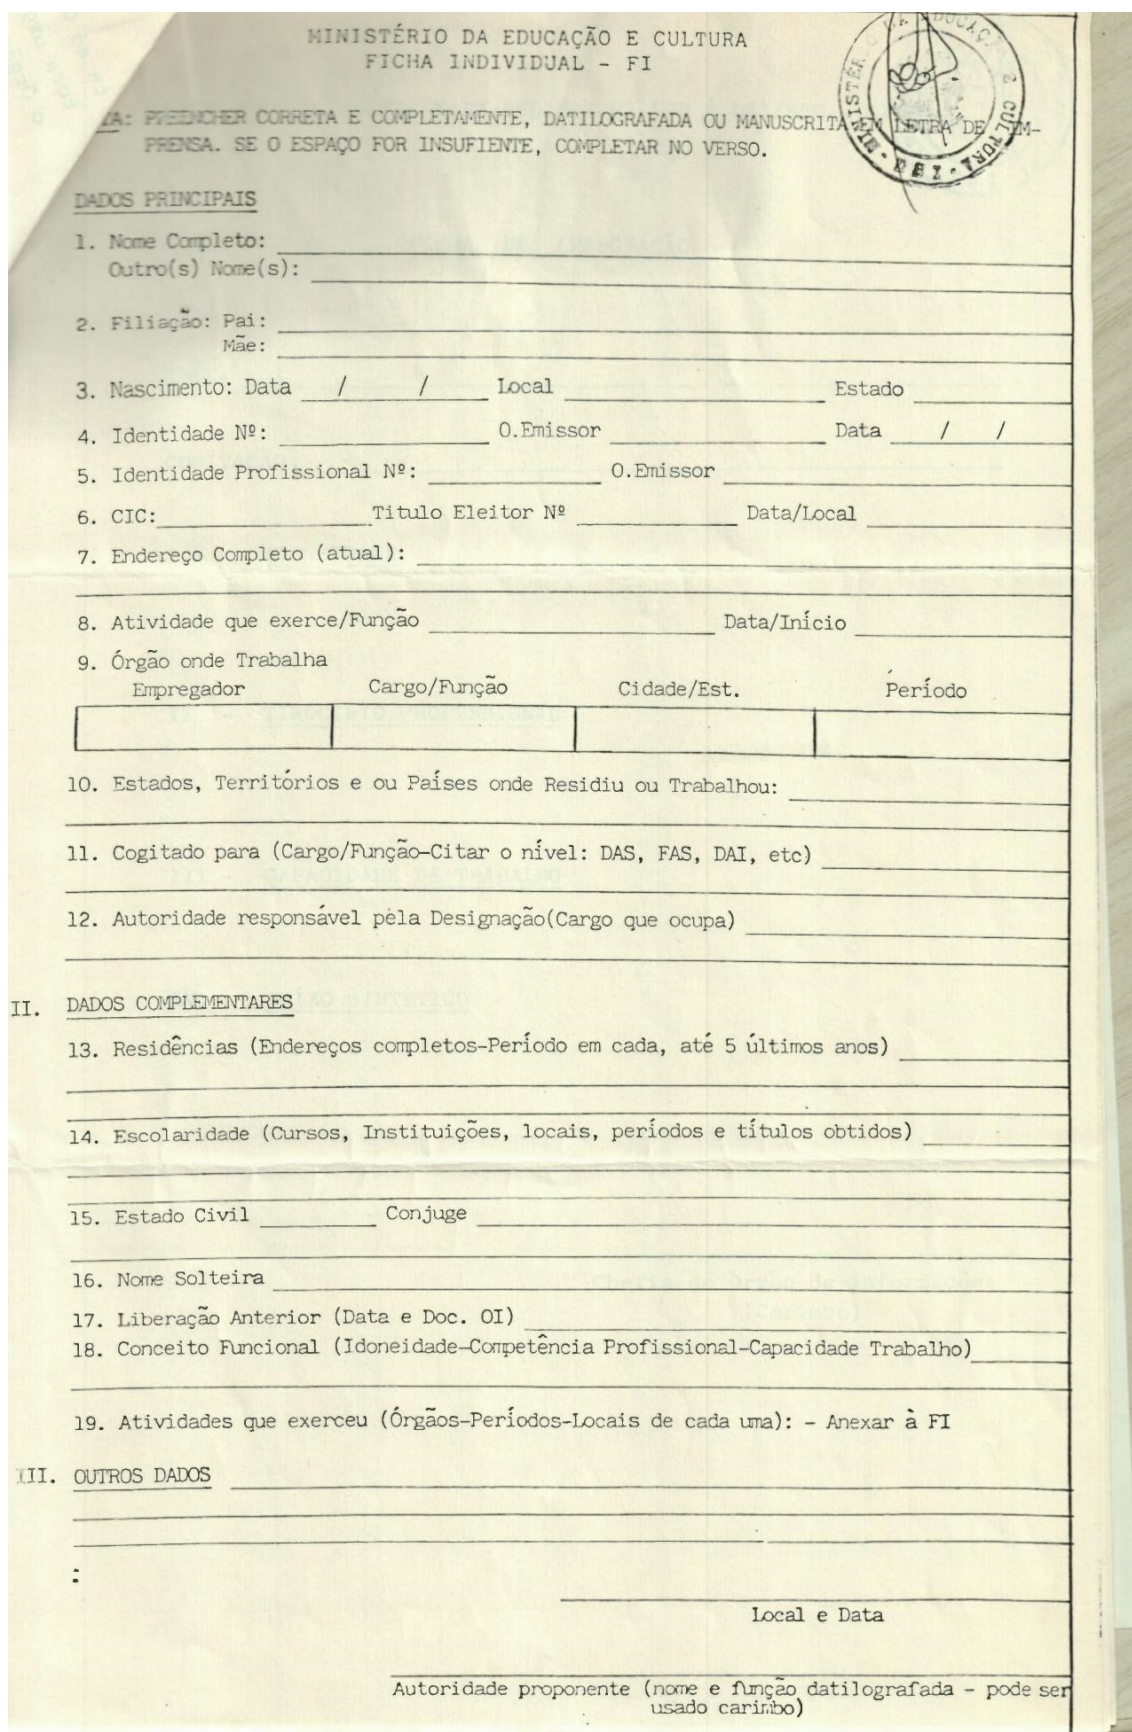 MINISTÉRIO DA EDUCAÇÃO E CULTURA
FICHA INDIVIDUAL - FI
PREENCHER CORRETA E COMPLETAMENTE, DATILOGRAFADA OU MANUSCRITA EM LETRA DE IM-
PRENSA. SE O ESPAÇO FOR INSUFIENTE, COMPLETAR NO VERSO.
MINISTÉRIO DA EDUCAÇÃO E CULTURA
DADOS PRINCIPAIS
1. Nome Completo:
Outro(s) Nome(s):
2. Filiação: Pai:
Mãe:
3. Nascimento: Data / / Local Estado
4. Identidade Nº: O.Emissor Data / /
5. Identidade Profissional Nº: O.Emissor
6. CIC: Titulo Eleitor Nº Data/Local
7. Endereço Completo (atual):
8. Atividade que exerce/Função Data/Início
9. Órgão onde Trabalha
Empregador Cargo/Função Cidade/Est. Período
10. Estados, Territórios e ou Países onde Residiu ou Trabalhou:
11. Cogitado para (Cargo/Função-Citar o nível: DAS, FAS, DAI, etc)
12. Autoridade responsável pela Designação(Cargo que ocupa)
II. DADOS COMPLEMENTARES
13. Residências (Endereços completos-Período em cada, até 5 últimos anos)
14. Escolaridade (Cursos, Instituições, locais, períodos e títulos obtidos)
15. Estado Civil Conjuge
16. Nome Solteira
17. Liberação Anterior (Data e Doc. OI)
18. Conceito Funcional (Idoneidade-Competência Profissional-Capacidade Trabalho)
19. Atividades que exerceu (Órgãos-Períodos-Locais de cada uma): - Anexar à FI
III. OUTROS DADOS
:
Local e Data
Autoridade proponente (nome e função datilografada - pode ser
usado carimbo)